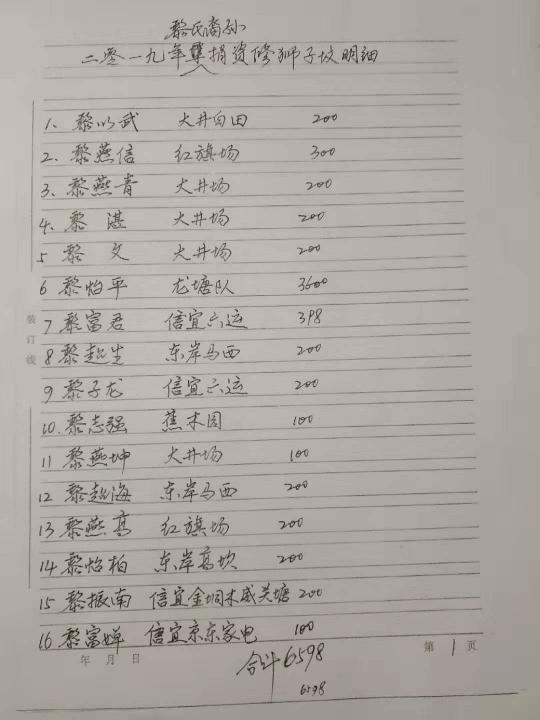 黎氏裔孙
二零一九年捐资修狮子坟明细
1、黎以武 大井白田 200
2、黎燕信 红旗场 300
3、黎燕青 大井场 200
4、黎湛 大井场 200
5 黎文 大井场 200
6 黎怡平 龙塘队 3600
7 黎富君 信宜六运 398
8 黎起生 东岸马西 200
9 黎子龙 信宜六运 200
10.黎志强 蕉木园 100
11 黎燕坤 大井场 100
12 黎起海 东岸马西 200
13 黎燕高 红旗场 200
14 黎怡柏 东岸高坎 200
15 黎振南 信宜金垌木威关塘 200
16 黎富婵 信宜京东家电 100
合计6598
6598
年 月 日
第 1 页
装订线